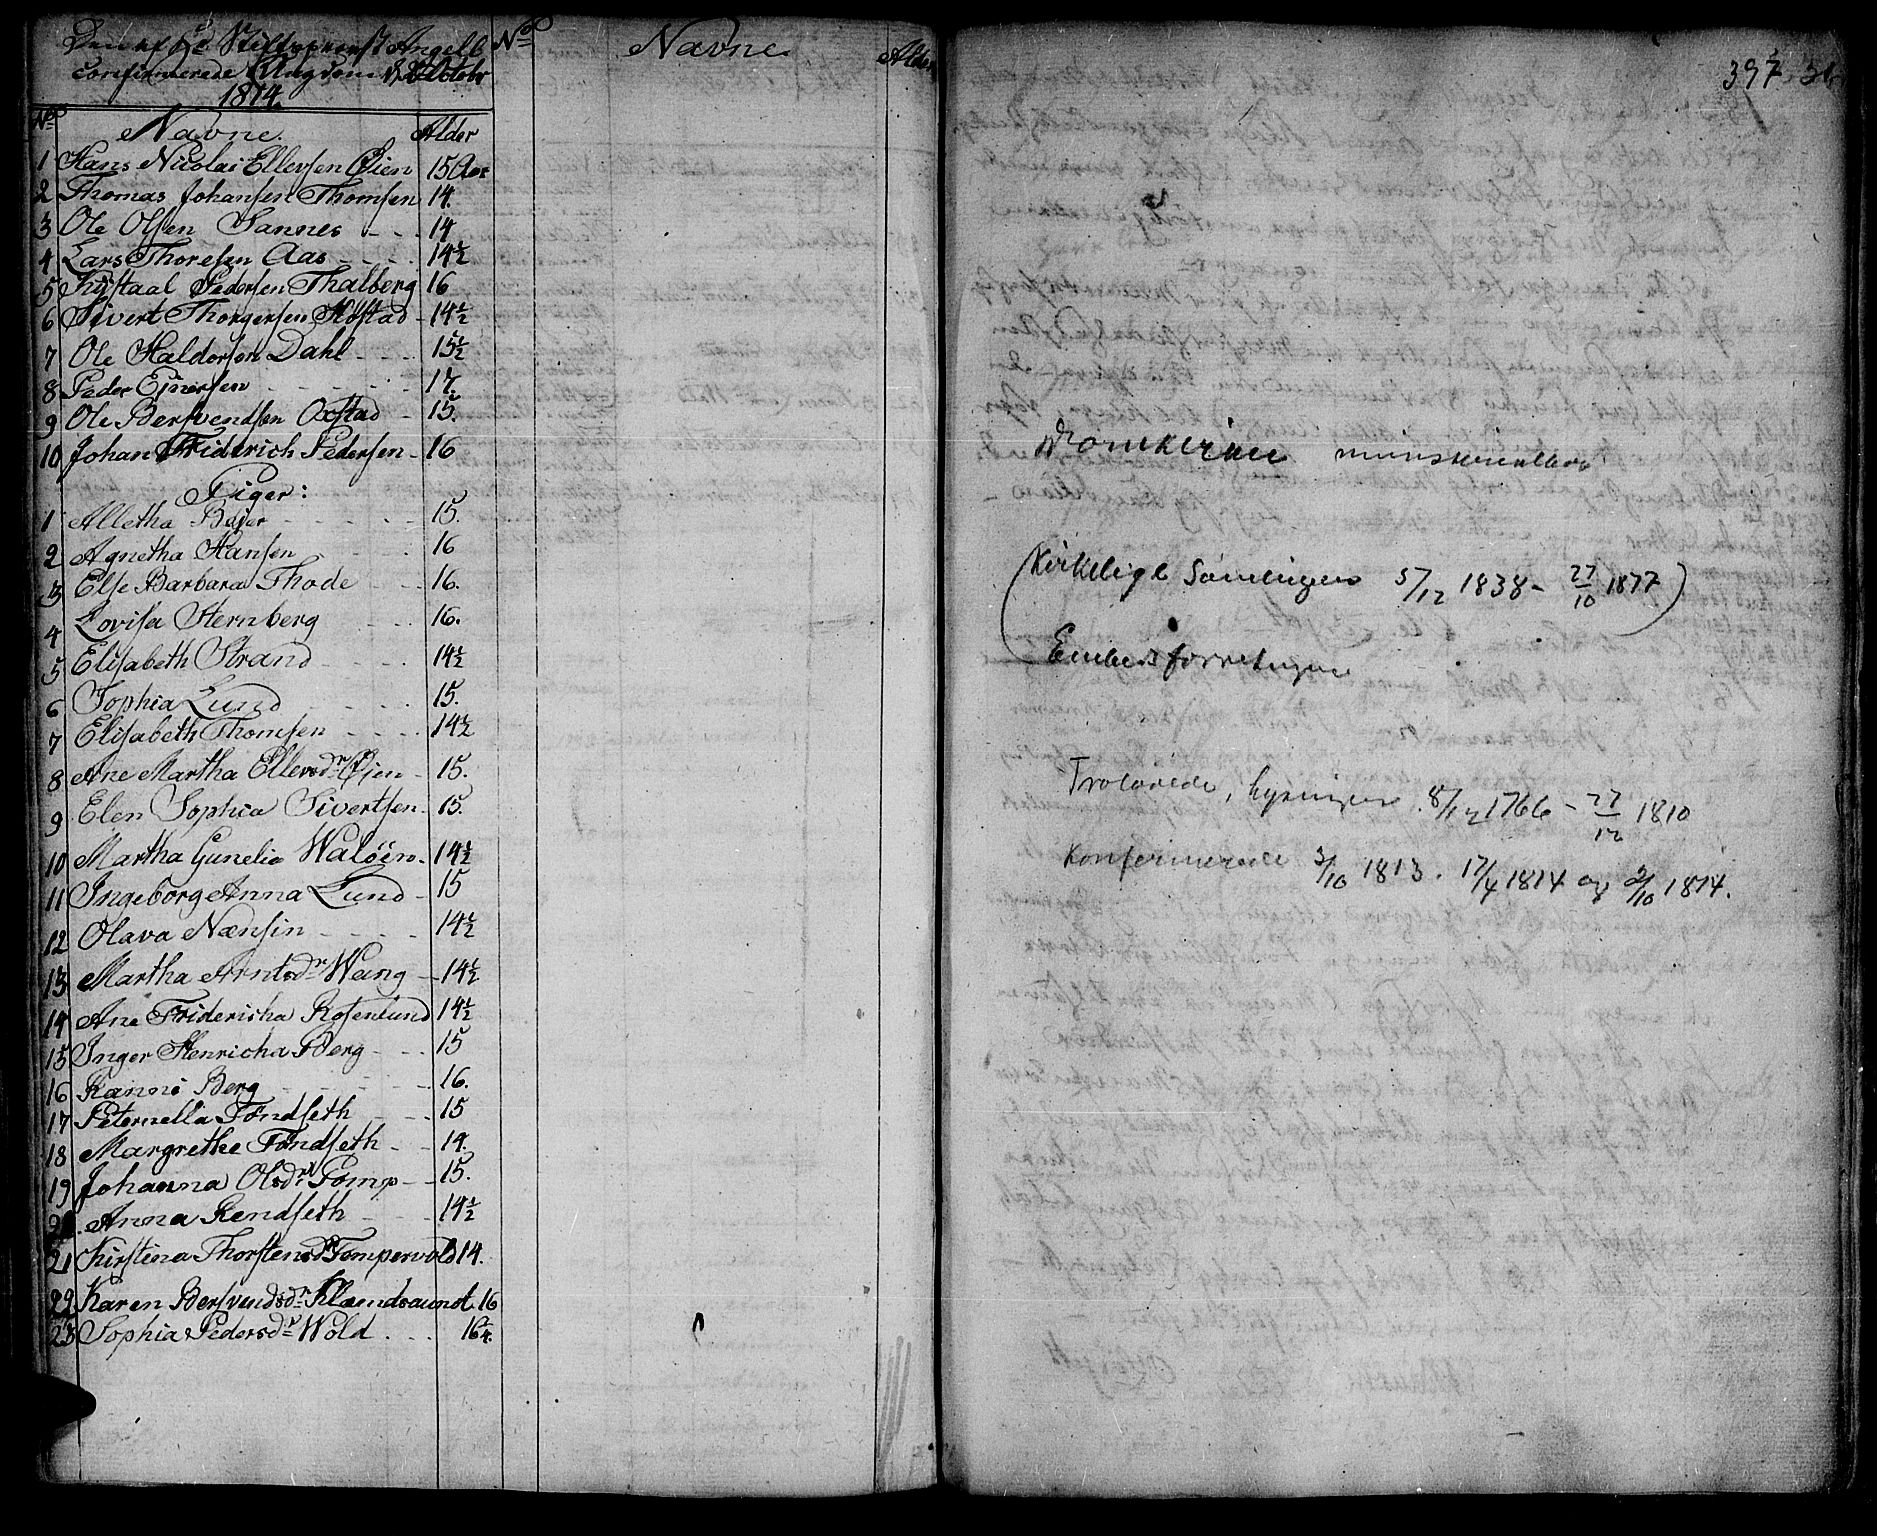 Den af Hr Stiftsprovst Angell
confirmerede Ungdom d. 2 Octobr
1814.
No Navne. Alder
1 Hans Nicolai Ellersen Øien 15 Aar
2 Thomas Johansen Thomsen 14.
3 Ole Olsen Sannes - - - 14
4 Lars Thoresen Aas - - - 14½
5 Kystaal Pedersen Thalberg 16
6 Sivert Thorgersen Rostad - 14½
7 Ole Haldorsen Dahl - - - 15½
8 Peder Ejnersen - - - 17.
9 Ole Bersvendsen Oxstad - 15.
10 Johan Friderich Pedersen - 16
Piger:
1 Alletha Bajer - - - 15.
2 Agnetha Hansen - - 16
3 Else Barbara Thode - - 16.
4 Lovisa Sternberg - - - 16.
5 Elisabeth Strand - - - 14½
6 Sophia Lund - - - 15.
7 Elisabeth Thomsen - - - 14½
8 Ane Martha Ellersdr Øien - 15.
9 Elen Sophia Sivertsen - 15.
10 Martha Gunelia Waløen - 14½
11 Ingeborg Anna Lund - 15
12 Olava Nænsin - - - 14½
13 Martha Arntsdr Wang - 14½
14 Ane Fridericha Rosenlund 14½
15 Inger Henricha Berg - - - 15
16 Kanni Berg - - - 16.
17 Peternella Tøndseth - - 15
18 Margrethe Tøndseth - - 14.
19 Johanna Olsdr Tomp - - 15.
20. Anna Rendseth - - 14½
21 Kirstina Thorstensdr Tompervold 14.
22 Karen Bersvendsdr Klændsaunet 16
23 Sophia Pedersdr Wold . . . 16¼
No Navne. Alder
397
Domkirken ministerialbog
(Kirkelige Samlingen 5/12 1838 - 27/10 1877)
Embedsforretninger
Trolovede, lysninger 8/12 1766 - 27/12 1810
Konfirmerede 3/10 1813. 17/4 1814 og 2/10 1814.